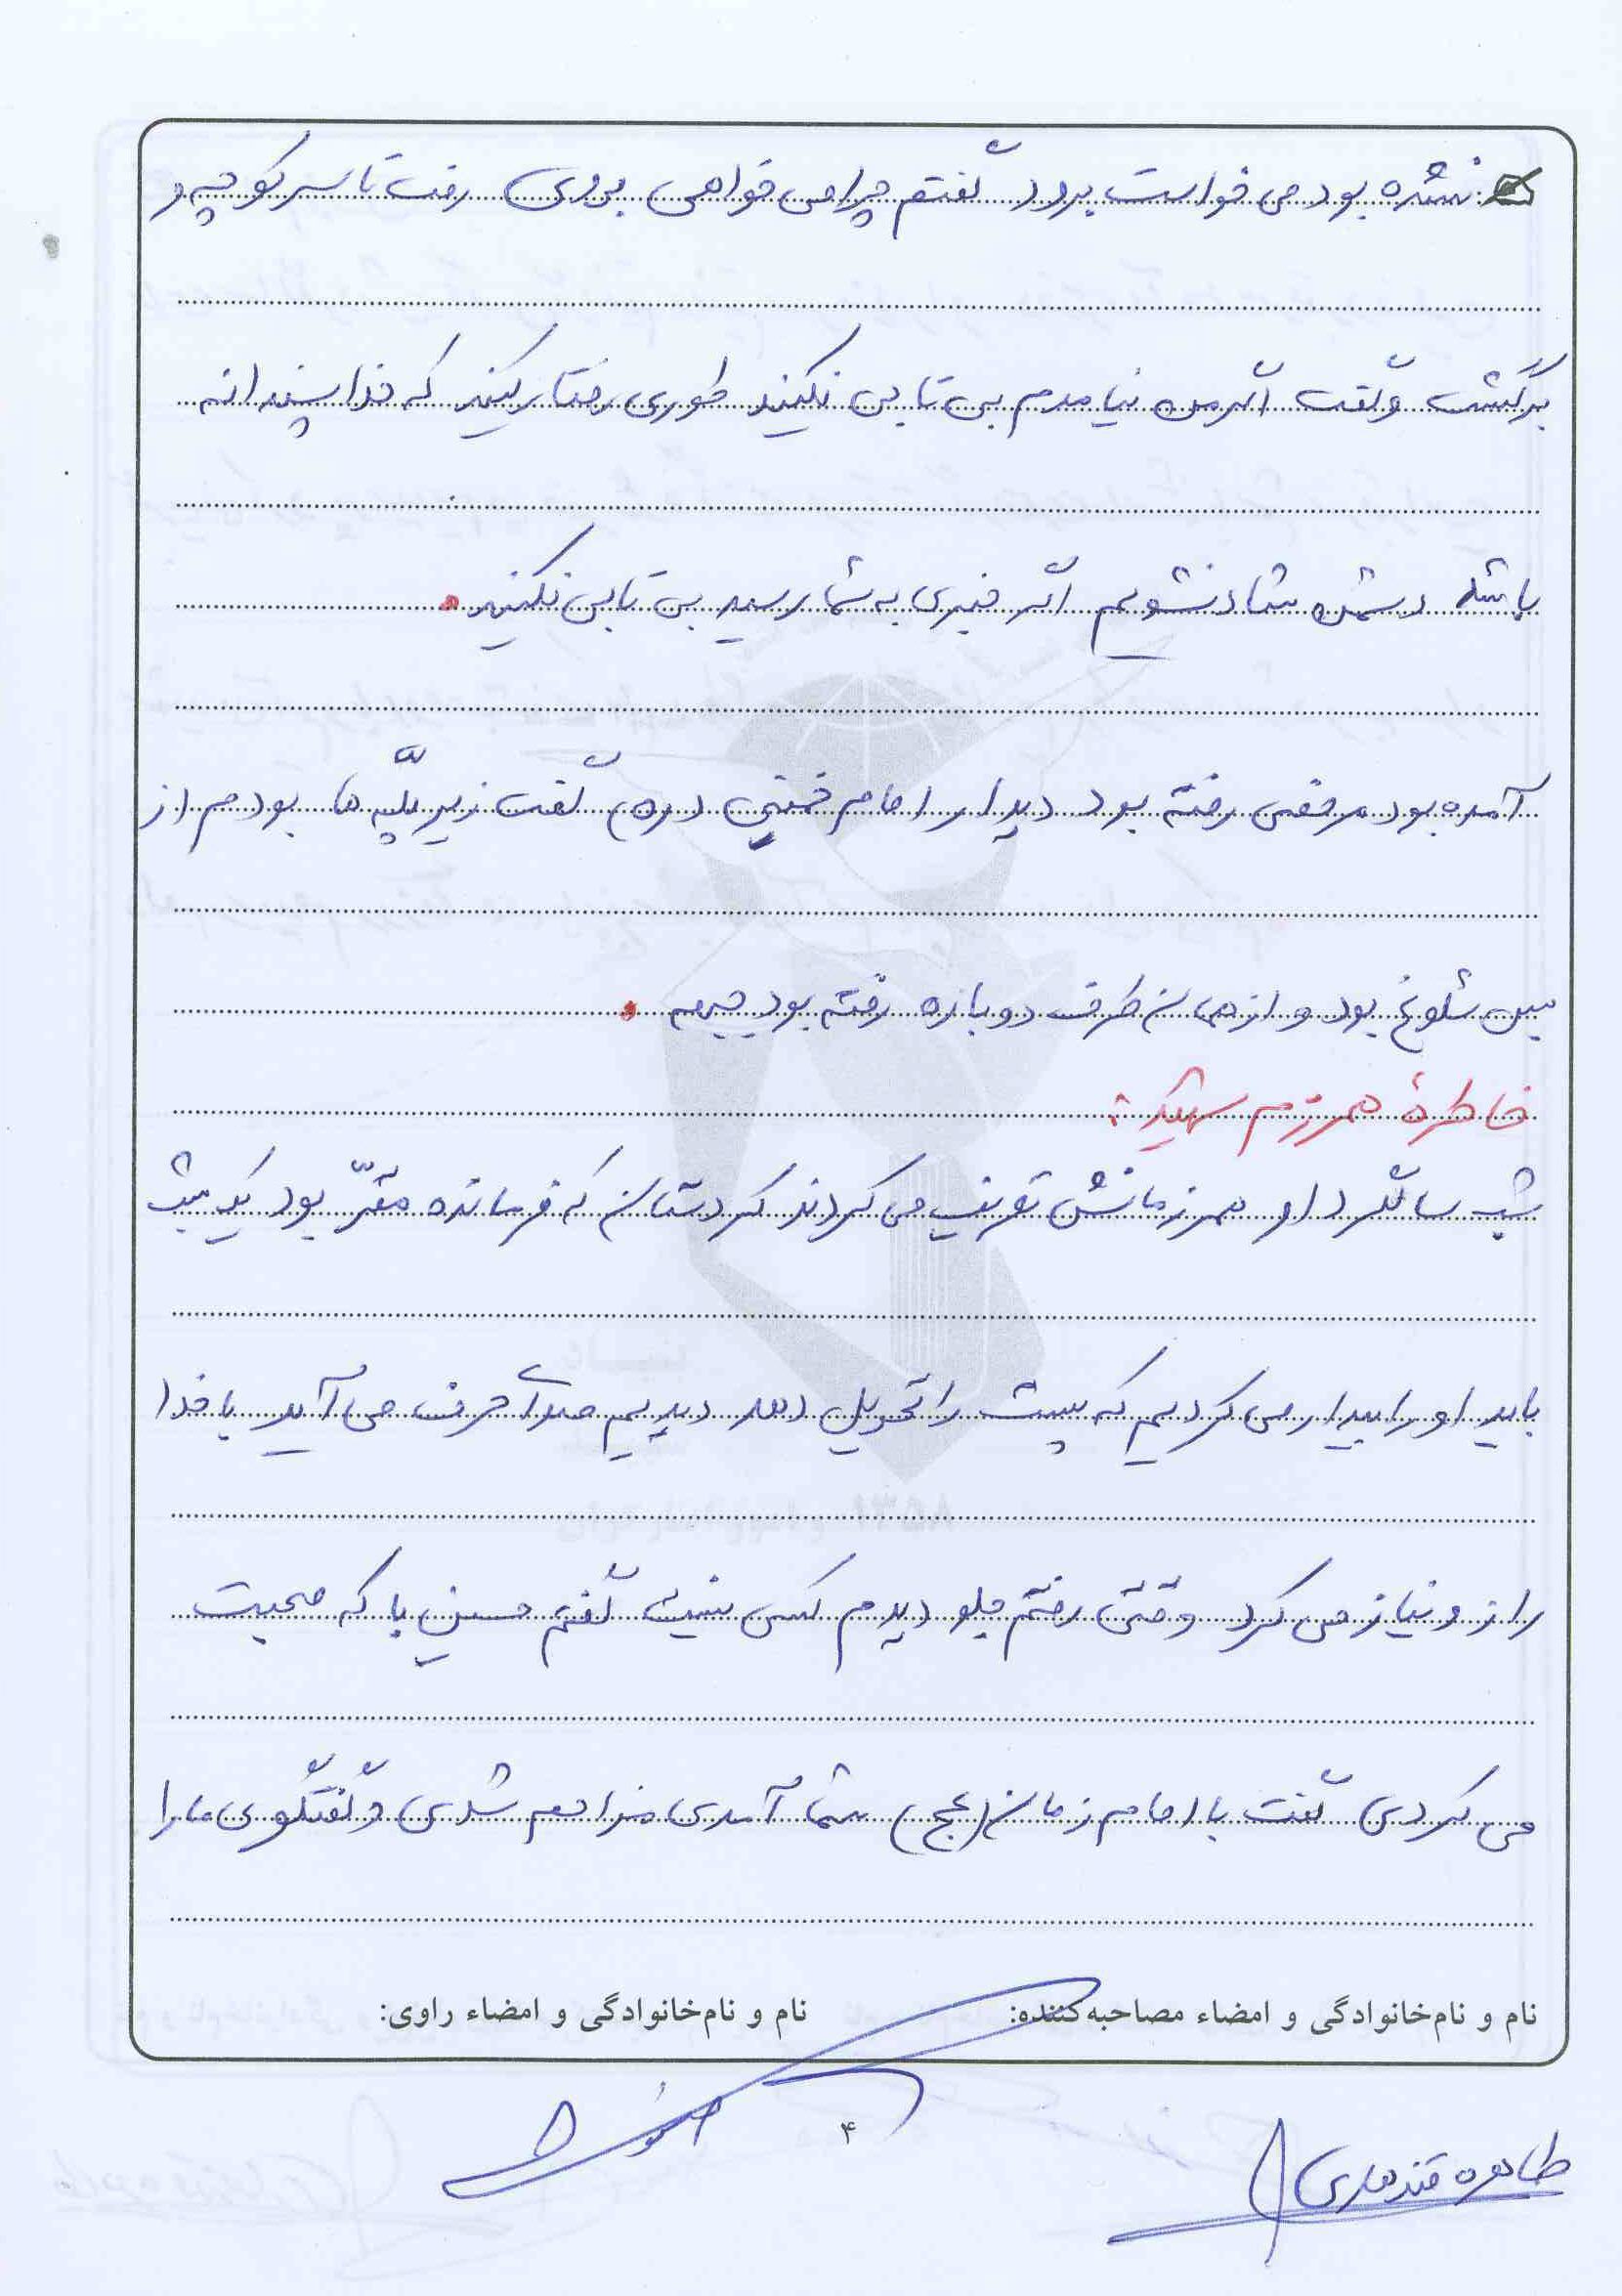 نشده بود می خواست برود گفتم چرا می خواهی بروی رفت تا سر کوچه و
برگشت و گفت اگر من نیامدم بی تابی نکنید طوری رفتار کنید که خدا پسندانه
باشد دشمن شاد نشویم اگر خبری به شما رسید بی تابی نکنید.
آمده بود مرخصی رفته بود دیدار امام خمینی (ره) گفت زیر پله ها بودم از
بس شلوغ بود و از همان طرف دوباره رفته بود جبهه.
خاطرهٔ همرزم شهید:
شب سالگرد او همرزمانش تعریف می کردند کردستان که فرمانده مقرّ بود یک شب
باید او را بیدار می کردیم که پست را تحویل دهد دیدیم صدای حرف می آید با خدا
راز و نیاز می کرد وقتی رفتم جلو دیدم کسی نیست گفتم حسین با که صحبت
می کردی گفت با امام زمان (عج) شما آمدی مزاحم شدی و گفتگوی ما را
نام و نام‌خانوادگی و امضاء مصاحبه‌کننده: نام و نام‌خانوادگی و امضاء راوی:
۴
طاهره قندهاری